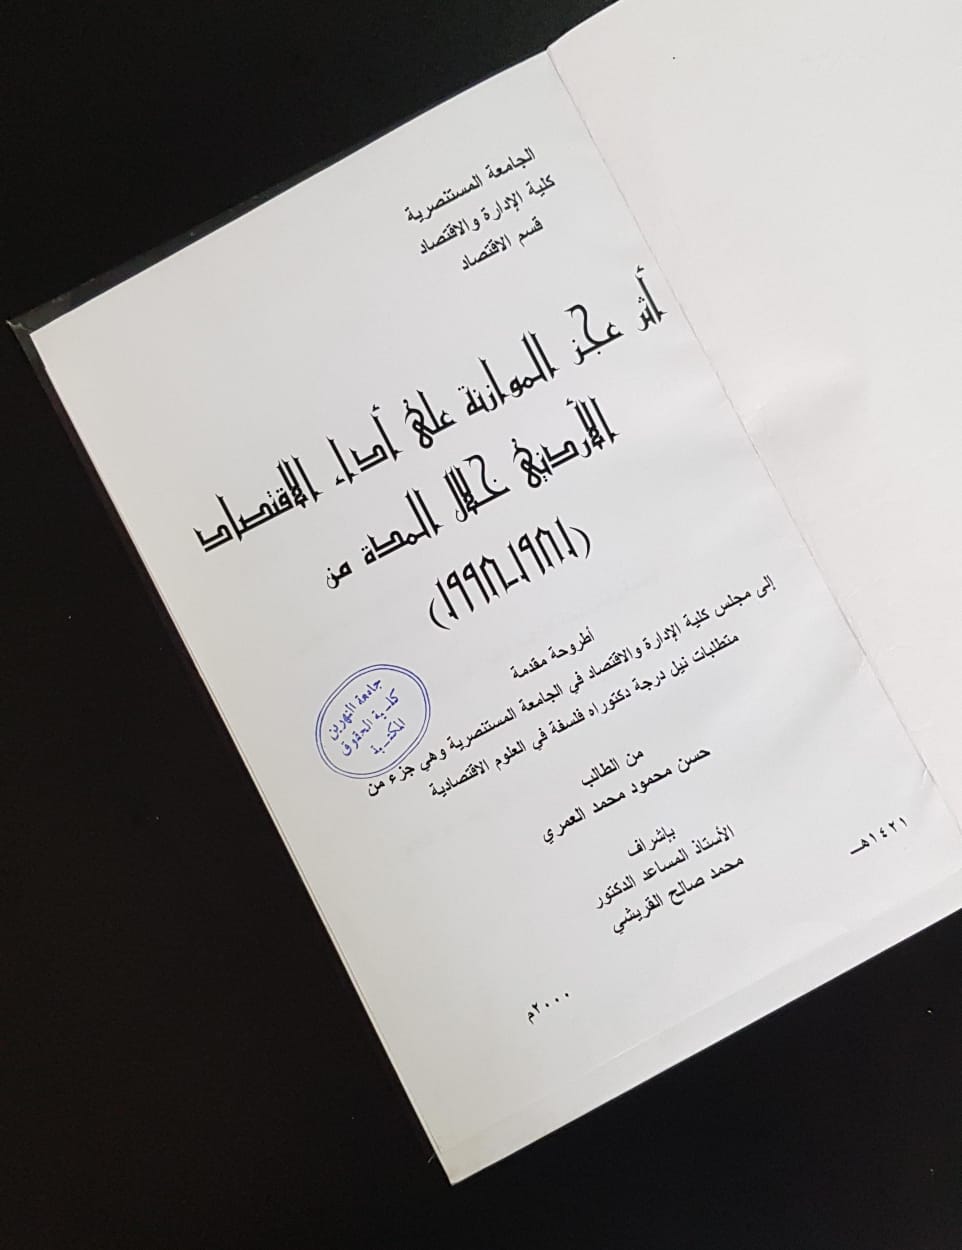 الجامعة المستنصرية
كلية الإدارة والاقتصاد
قسم الاقتصاد
أثر عجز الموازنة على أداء الاقتصاد
الأردني خلال المدة من
(١٩٨١ـ١٩٩٨)
أطروحة مقدمة
إلى مجلس كلية الإدارة والاقتصاد في الجامعة المستنصرية وهي جزء من
متطلبات نيل درجة دكتوراه فلسفة في العلوم الاقتصادية
جامعة النهرين
كلية الحقوق
المكتبة
من الطالب
حسن محمود محمد العمري
بإشراف
الأستاذ المساعد الدكتور
محمد صالح القريشي
١٤٢١هـ
٢٠٠٠م